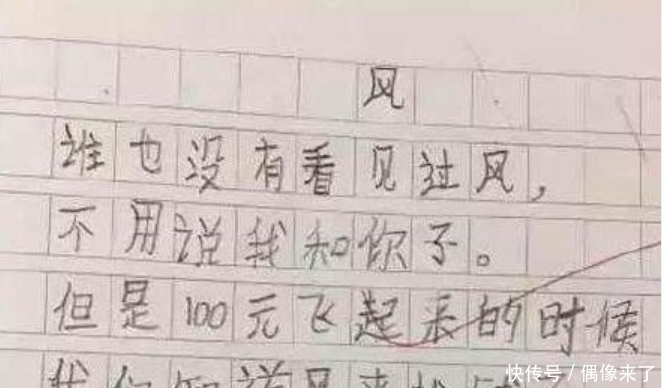 风
谁也没有看见过风，
不用说我和你子。
但是100元飞起来的时候
快传号/偶像来了